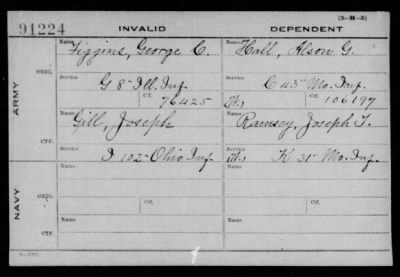 (3-315)
91224 INVALID DEPENDENT
Name Figgins, George C. Name Hall, Alson G.
ARMY
ORIG.
Service G 8" Ill. Inf. Service C 43" Mo. Inf.
Ctf. 76425 W. Ctf. 106197
CTF.
Name Gill, Joseph Name Ramsey, Joseph T.
Service D 102" Ohio Inf. Service W. K 31" Mo. Inf.
NAVY
ORIG.
Name Name
Service Ctf. Service Ctf.
CTF.
Name Name